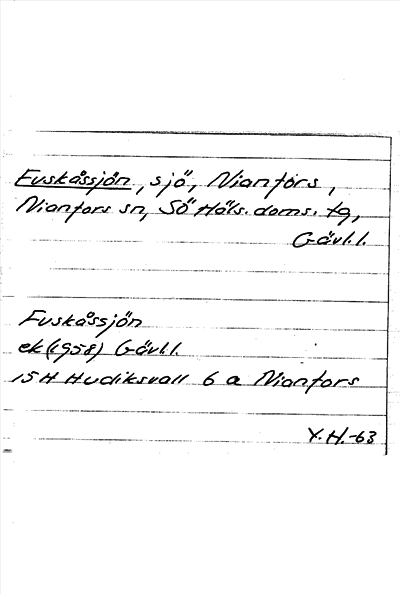 Fuskåssjön, sjö, Nianfors,
Nianfors sn, Sö Häls. doms. tg,
Gävl.l.
Fuskåssjön
ek (1958) Gävl.l.
15 H Hudiksvall 6 a Nianfors
Y.H.-63